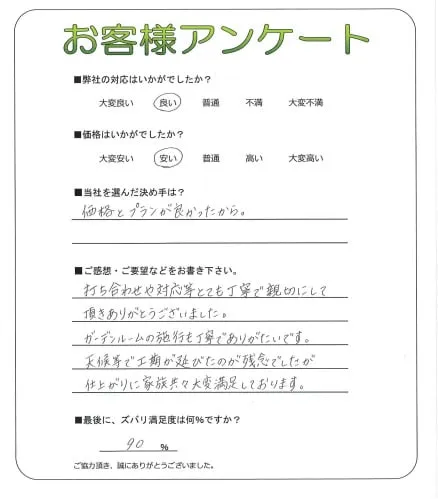 お客様アンケート
■弊社の対応はいかがでしたか？
大変良い 良い 普通 不満 大変不満
■価格はいかがでしたか？
大変安い 安い 普通 高い 大変高い
■当社を選んだ決め手は？
価格とプランが良かったから。
■ご感想・ご要望などをお書き下さい。
打ち合わせや対応等とても丁寧で親切にして
頂きありがとうございました。
ガーデンルームの施行も丁寧でありがたいです。
天候等で工期が延びたのが残念でしたが
仕上がりに家族共々大変満足しております。
■最後に、ズバリ満足度は何％ですか？
90 %
ご協力頂き、誠にありがとうございました。